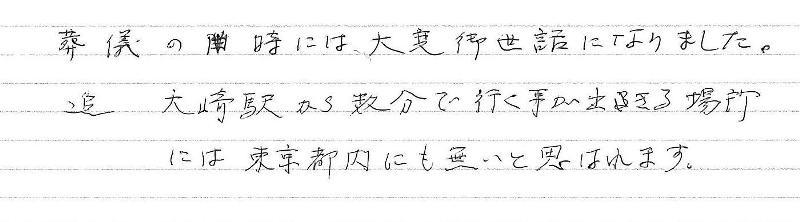 葬儀の時には、大変御世話になりました。
追 大崎駅から数分で行く事が出来る場所
には東京都内にも無いと思はれます。